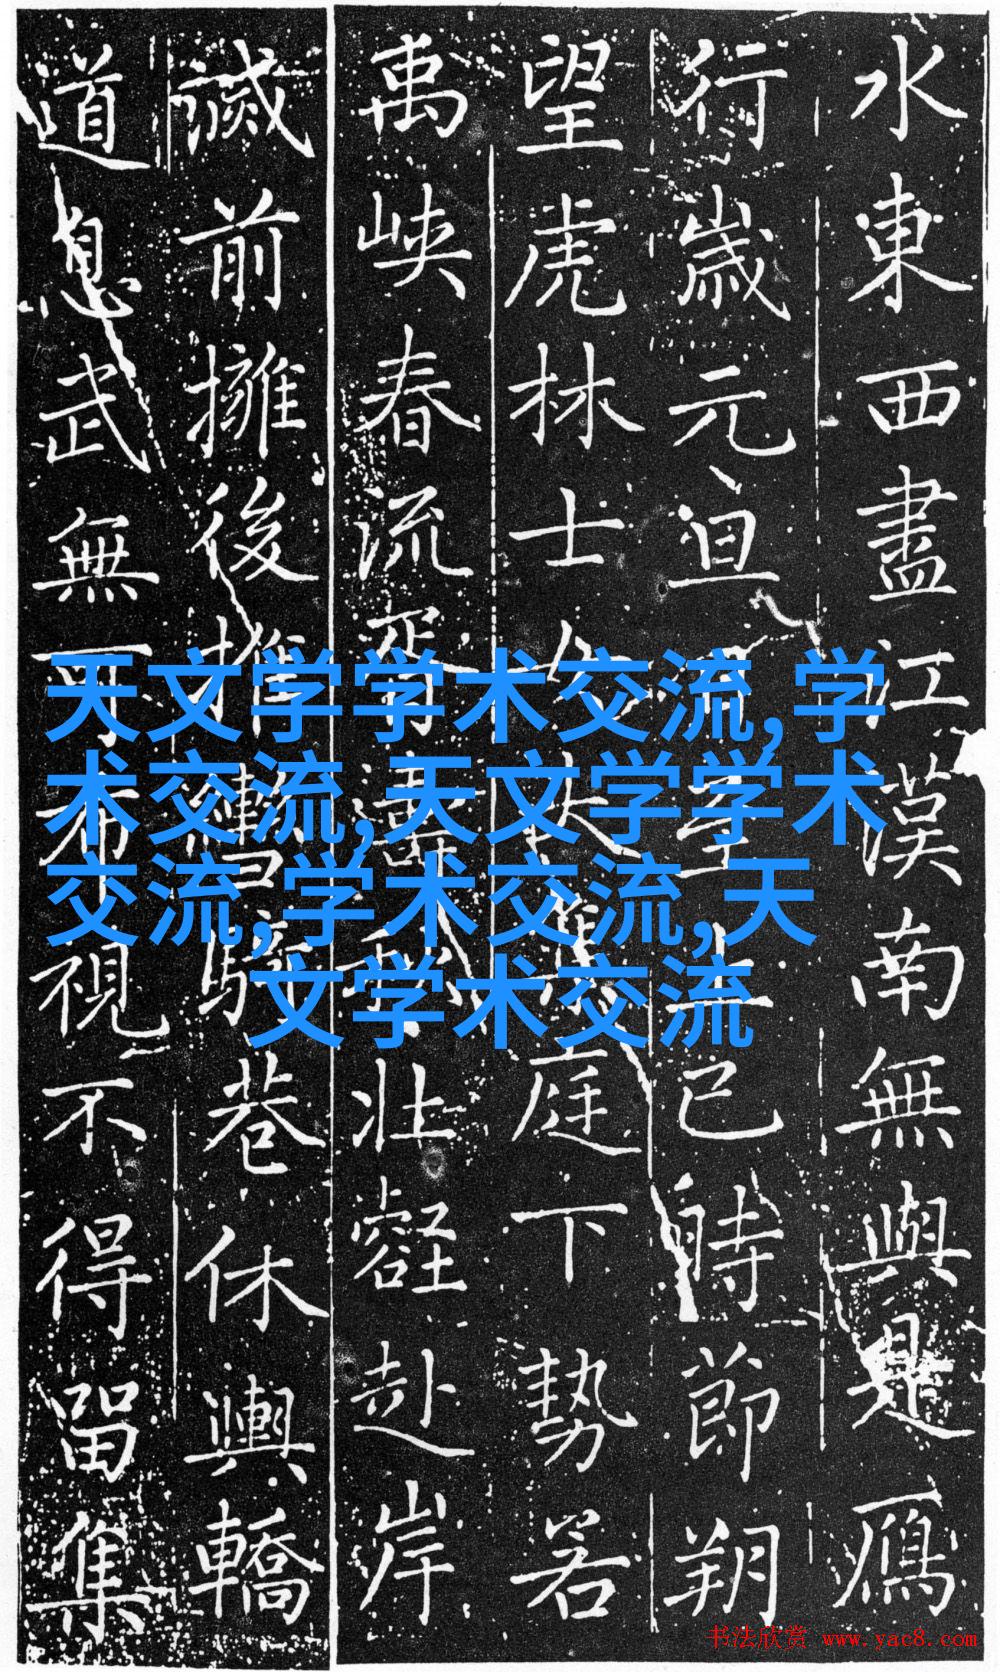 水東西盡江漢南無與是鴈
行歲元旦至上巳時節朔
望虎林士女大庭下势若
禹峽春流胥濤秋壯赴岸
前擁後推巷休輿轎
道息武無可布視不得留集
天文学学术交流,学
术交流,天文学学术
交流,学术交流,天
文学术交流
书法欣赏 www.yac8.com